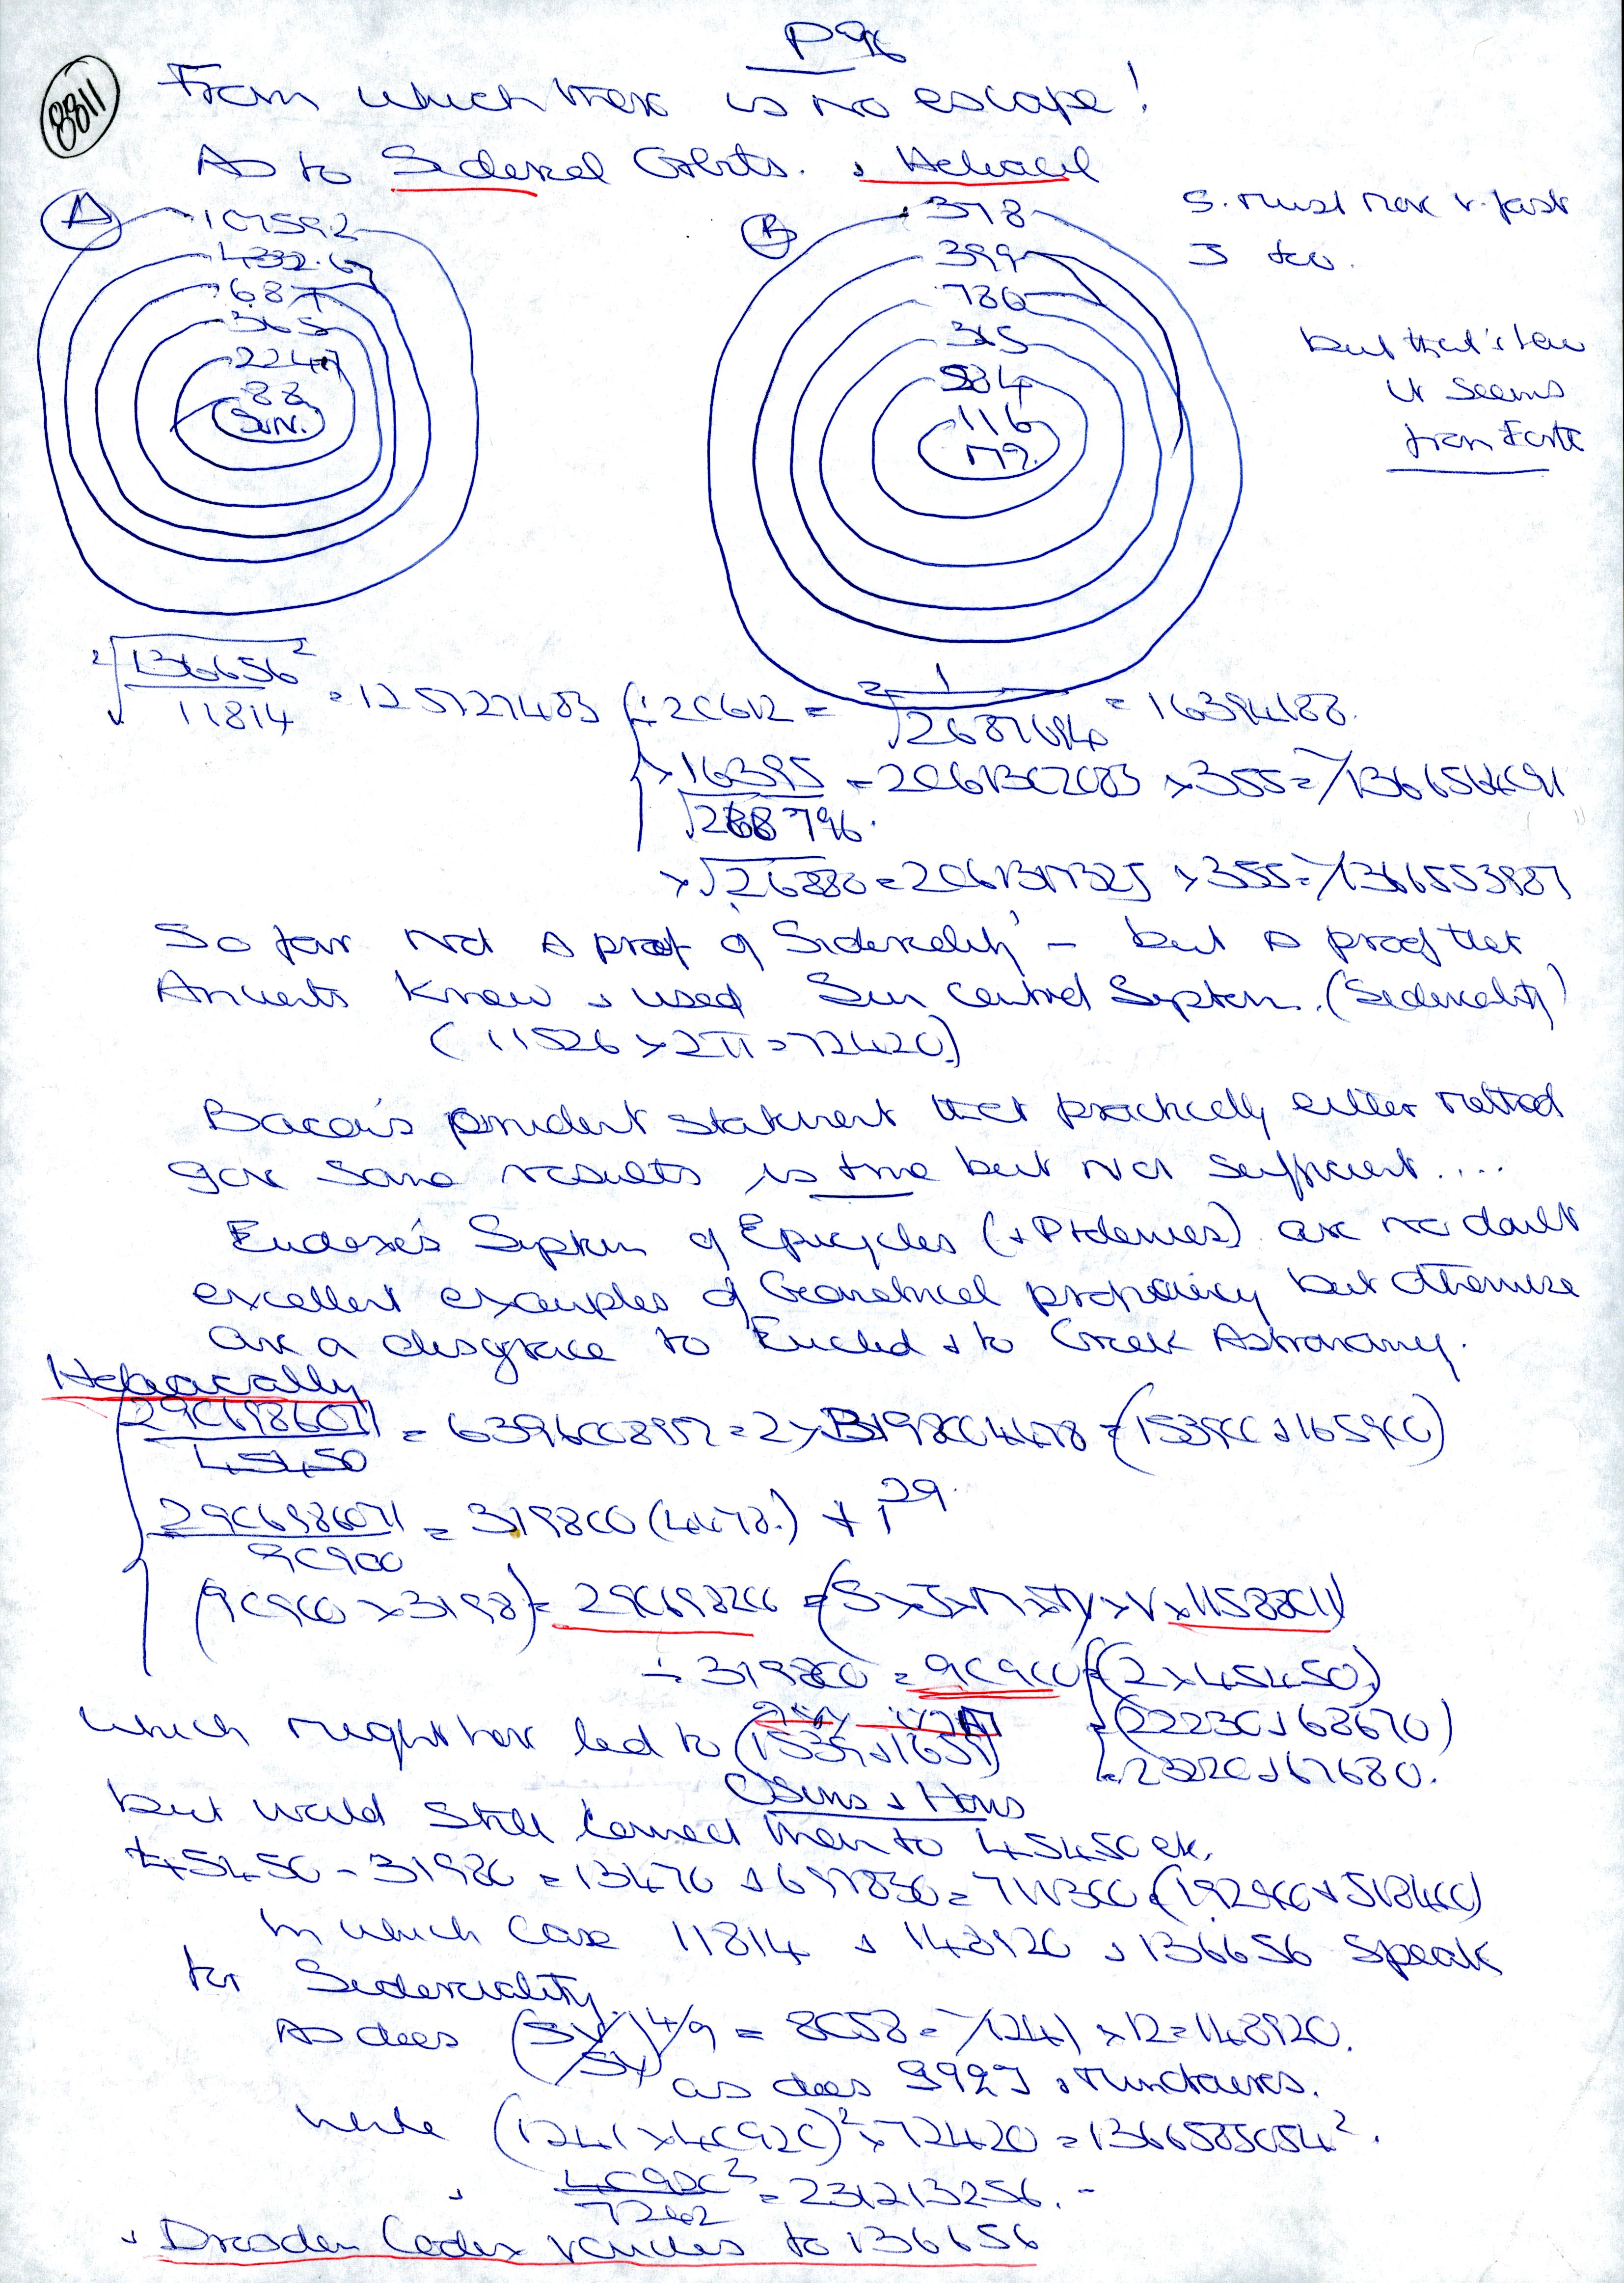 P96
8811
From which there is no escape!
As to Sidereal Orbits. & Heliacal
A
10759.2
4332.6
687
365
224.7
88
Sun.
B
378
399
780
365
584
116
S. must move v. fast
J too.
but that's how
it seems
from Earth
²√136656² / 11814 = 125727483 (÷ 20612 = ²√1/2687694 = 16394188.
× 16395 / √268796 = 2061302083 × 355 =
× √26880 = 2061317325 × 355 =
So far not a proof of 'Sidereality' – but a proof that
Ancients knew & used Sun Central System. (Sidereality)
(11526 × 2π = 72420)
Bacon's prudent statement that practically either method
gave same results is true but not sufficient....
Eudoxe's System of Epicycles (& Ptolemies) are no doubt
excellent examples of Geometrical proficiency but otherwise
are a disgrace to Euclid & to Greek Astronomy.
Heliacally
290698607 / 45450 = 6396008957 = 2 × 3198004478 = (153900 & 165900)
290698607 / 90900 = 319800 (4478.)
(90900 × 3198) = 29069820 = (S × J × M × × V × 1158801)
÷ 319800 = 90900 = (2 × 45450)
which might have led to (1539 & 1659)
= (22230 & 68670)
23220 & 67680.
Osiris & Horus
but would still them to 45450 etc.
45450 – 31980 = 13470 & 697830 = 711300 = (192900 & 518400)
in which case 11814 & 148920 & 136656 speak
for Sidereality.
As does 4/9 = 8058 = 1241 × 12 = 148920.
as does 3927 &
while (1241 × 40920)² × 72420 = 1366585054².
& 40920² / 7242 = 231213256. –
& Dresden Codex Venuses to 136656